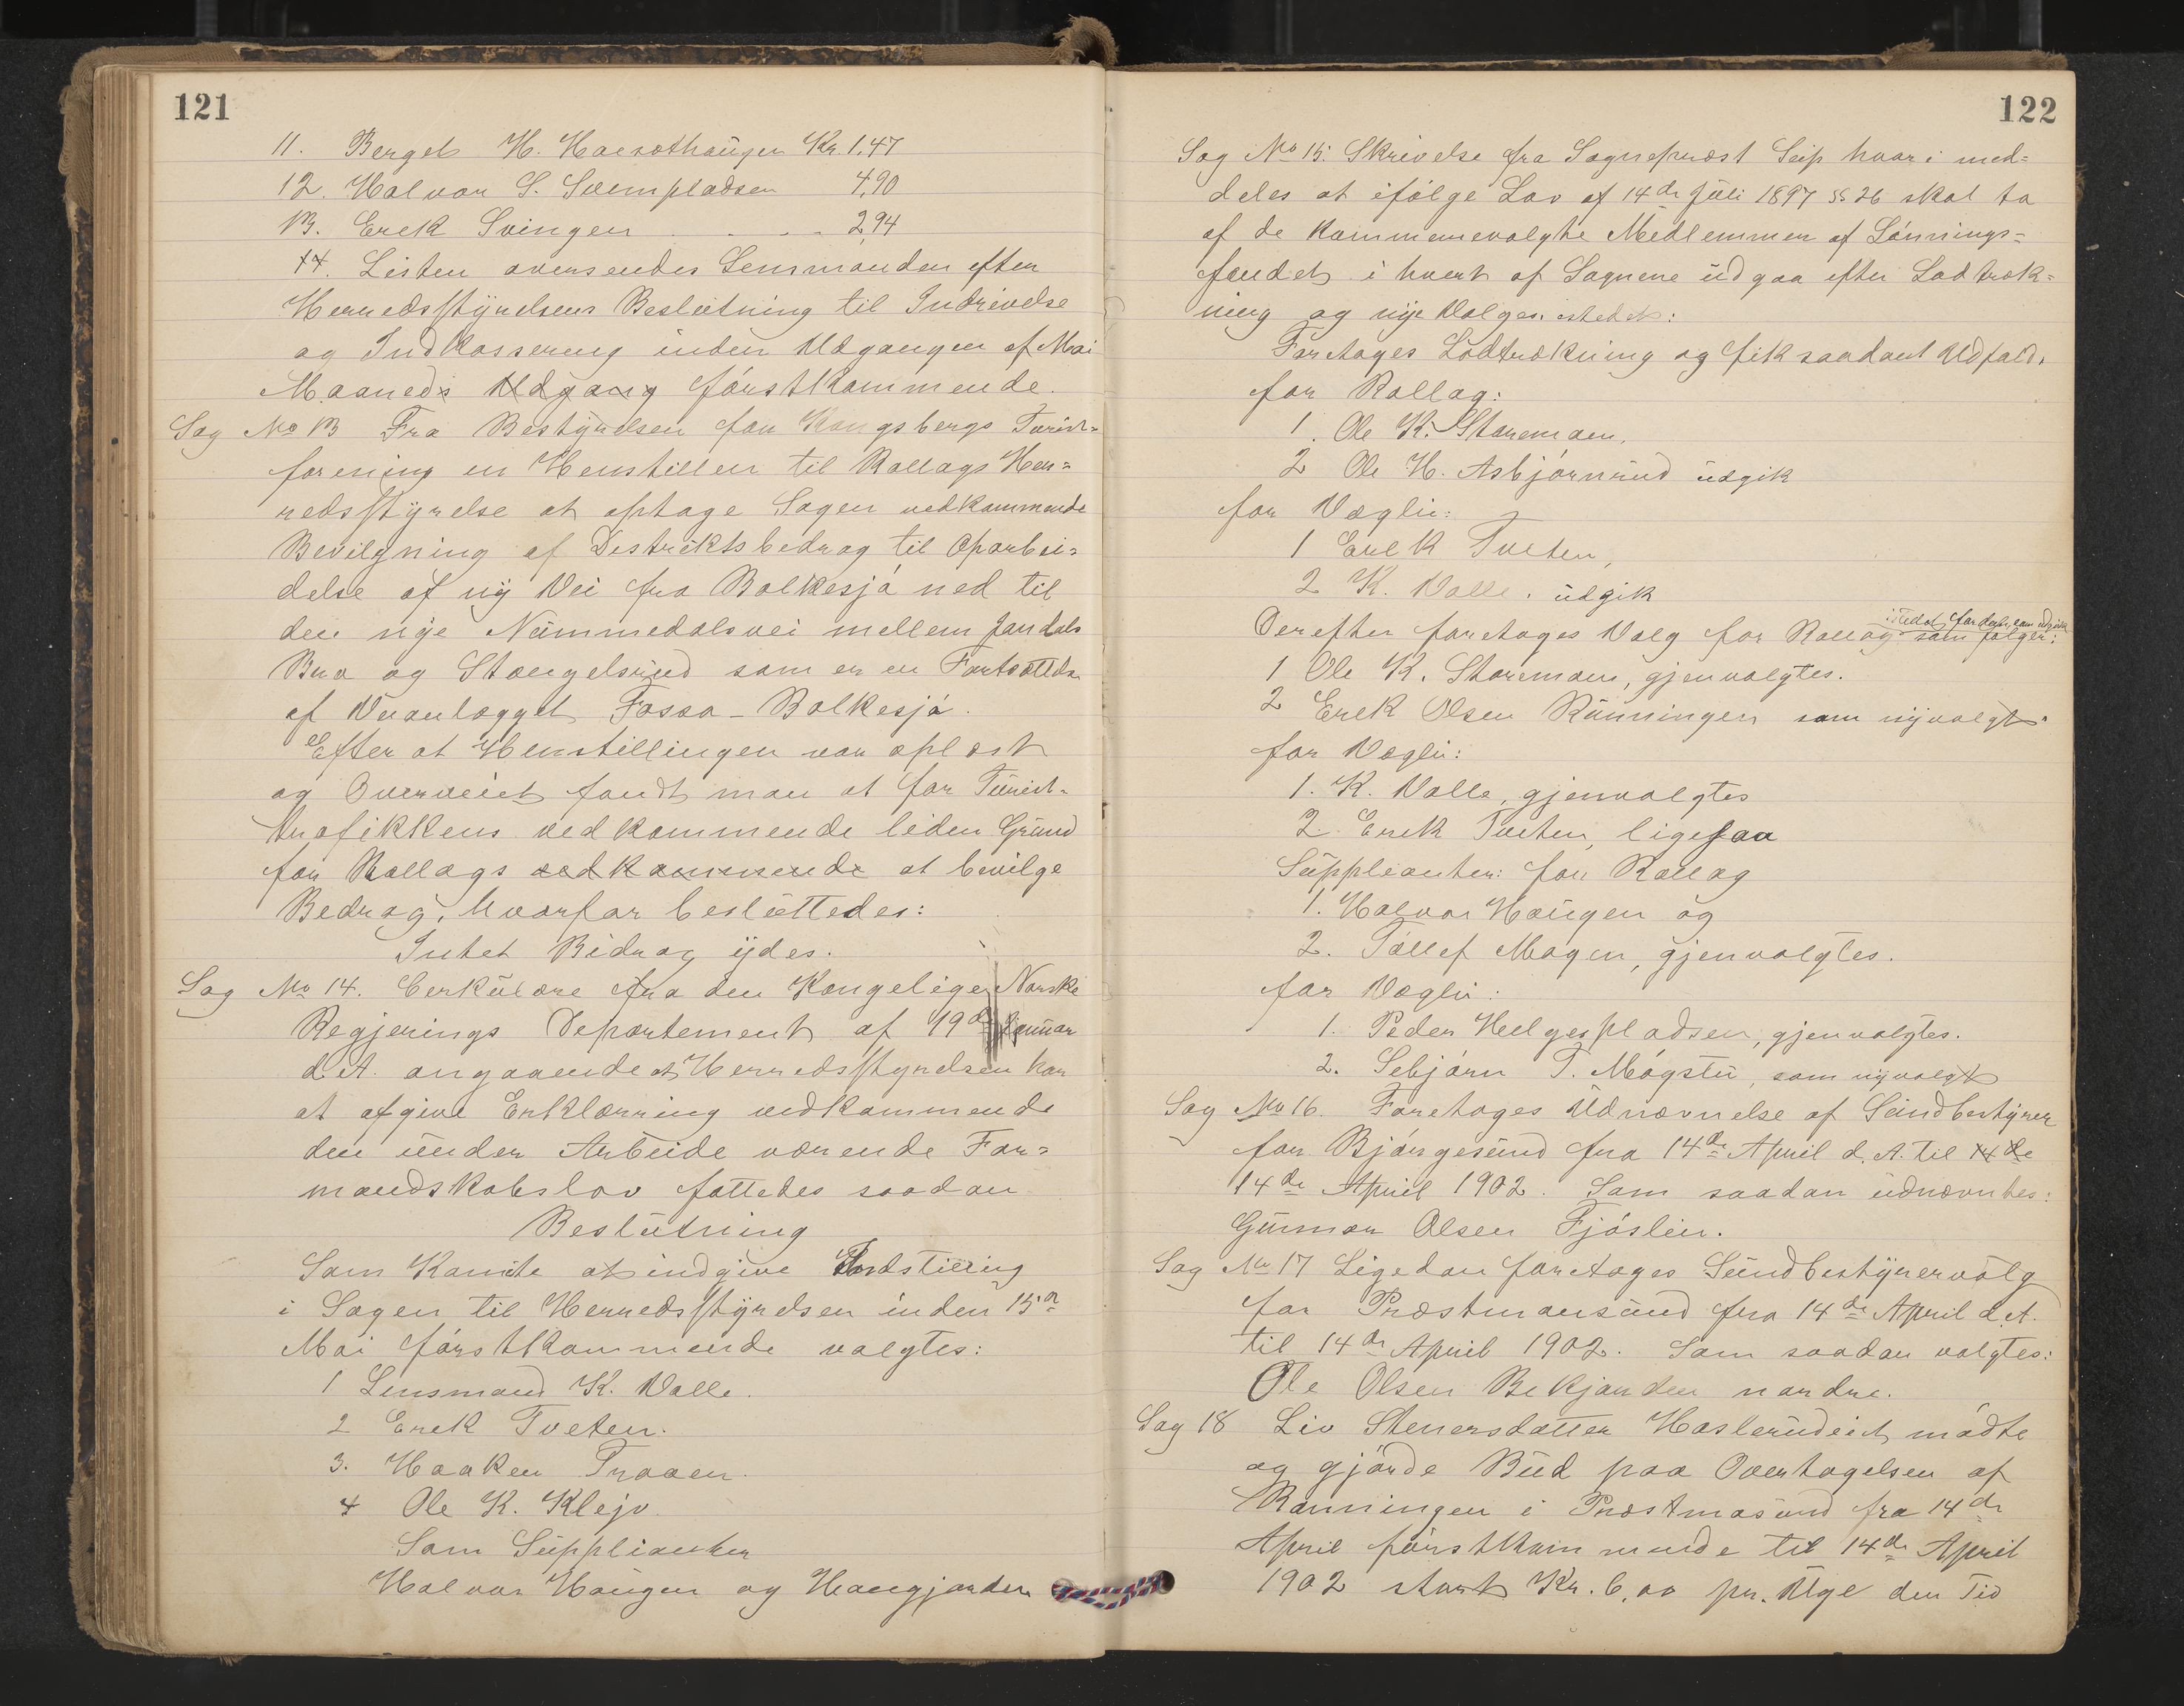 121
11. Berget H. Haesothaugen Kr. 1,47
12. Halvor S. Svempladsen 4,90
13. Erek Svingen . . . . 2,94
14. Listen oversendes Lensmanden efter
Herredsstyrelsens Beslutning til Indrivelse
og Indkassereng inden Udgangen af Mai
Maaneds Udgang förstkommende.
Sag No 13 Fra Bestyrelsen for Kongsbergs Turist-
forening en Henstillen til Rollags Her-
redsstyrelse at optage Sagen vedkommende
Bevilgning af Destriktsbedrag til Oparbei-
delse af ny Vei fra Bolkesjö ned til
den nye Nummedalsvei mellem Jondals
Bro og Stengelsrud som er en Fortsættelse
af Veianlægget Fosso-Bolkesjö.
Efter at Henstillingen var oplæst
og Overveiet fandt man at for Turist-
trafikkens vedkommende leden Grund
for Rollags vedkommende at bevilge
Bedrag, hvorfor besluttedes:
Intet Bidrag ydes.
Sag No 14. Cerkulære fra den Kongelige Norske
Regjerings Departement af 19de Januar
d.A. angaaende at Herredsstyrelsen har
at afgive Erklærring vedkommende
den under Arbeide værende For-
mandskabslov fattedes saadan
Beslutning
Som Komite at indgive Indstilling
i Sagen til Herredsstyrelsen inden 15de
Mai förstkommende valgtes:
1 Lensmand K. Valle.
2 Erek Tveten.
3. Haaken Traaen.
4 Ole K. Klejv
Som Supplianter
Halvor Haugen og Haugjorden
122
Sag No 15. Skrivelse fra Sogneprest Seip hvor i med-
deles at ifölge Lov af 14de Juli 1897 §§ 26 skal to
af de kommunevalgte Medlemmer af Lönnings-
fondet i hvert af Sognene udgaa efter Lodtræk-
ning og nye Valges istedet:
Foretoges Lodtrækning og fik saadant Udfald.
for Rollag:
1. Ole K. Storemoen,
2 Ole H. Asbjörnrud udgik
for Væglie:
1 Erek Tveten,
2 K. Valle. udgik
Derefter foretoges Valg for Rollag istedet for dem som udgik som fölger:
1 Ole K. Storemoen, gjenvalgtes.
2 Erek Olsen Rünningen som nyvalgt.
for Væglie:
1. K. Valle, gjenvalgtes
2. Erek Tveten, ligesaa
Suppleanter: for Rollag
1. Halvor Haugen og
2. Tollef Mogen, gjenvalgtes.
for Væglie:
1. Peder Helgespladsen, gjenvalgtes.
2. Sebjörn T. Mögstu, som nyvalgt
Sag No 16. Foretoges Udnævnelse af Sundbestyrer
for Bjöngesund fra 14de April d.A. til 14de
14de April 1902. Som saadan udnævntes:
Gunnar Olsen Fjöslien.
Sag No 17 Ligedan foretoges Sundbestyrervalg
for Præstmosund fra 14de April d.A.
til 14de April 1902. Som saadan valgtes:
Ole Olsen Bekjorden nordre.
Sag 18 Liv Stenersdatter Haslerudeiet mödte
og gjörde Bud paa Overtagelsen af
Roningen i Præstmosund fra 14de
April förstkommende til 14de April
1902 stort Kr. 6,00 pr. Uge den Tid